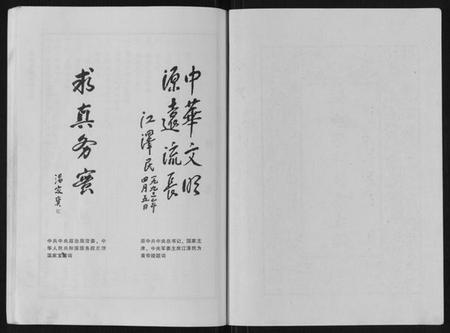 中華文明
源遠流長
江澤民
一九九二年
四月五日
原中共中央总书记、国家主
席、中央军委主席江泽民为
黄帝陵题词
求真务實
温家寶
中共中央政治局常委、中
华人民共和国国务院总理
温家宝题词